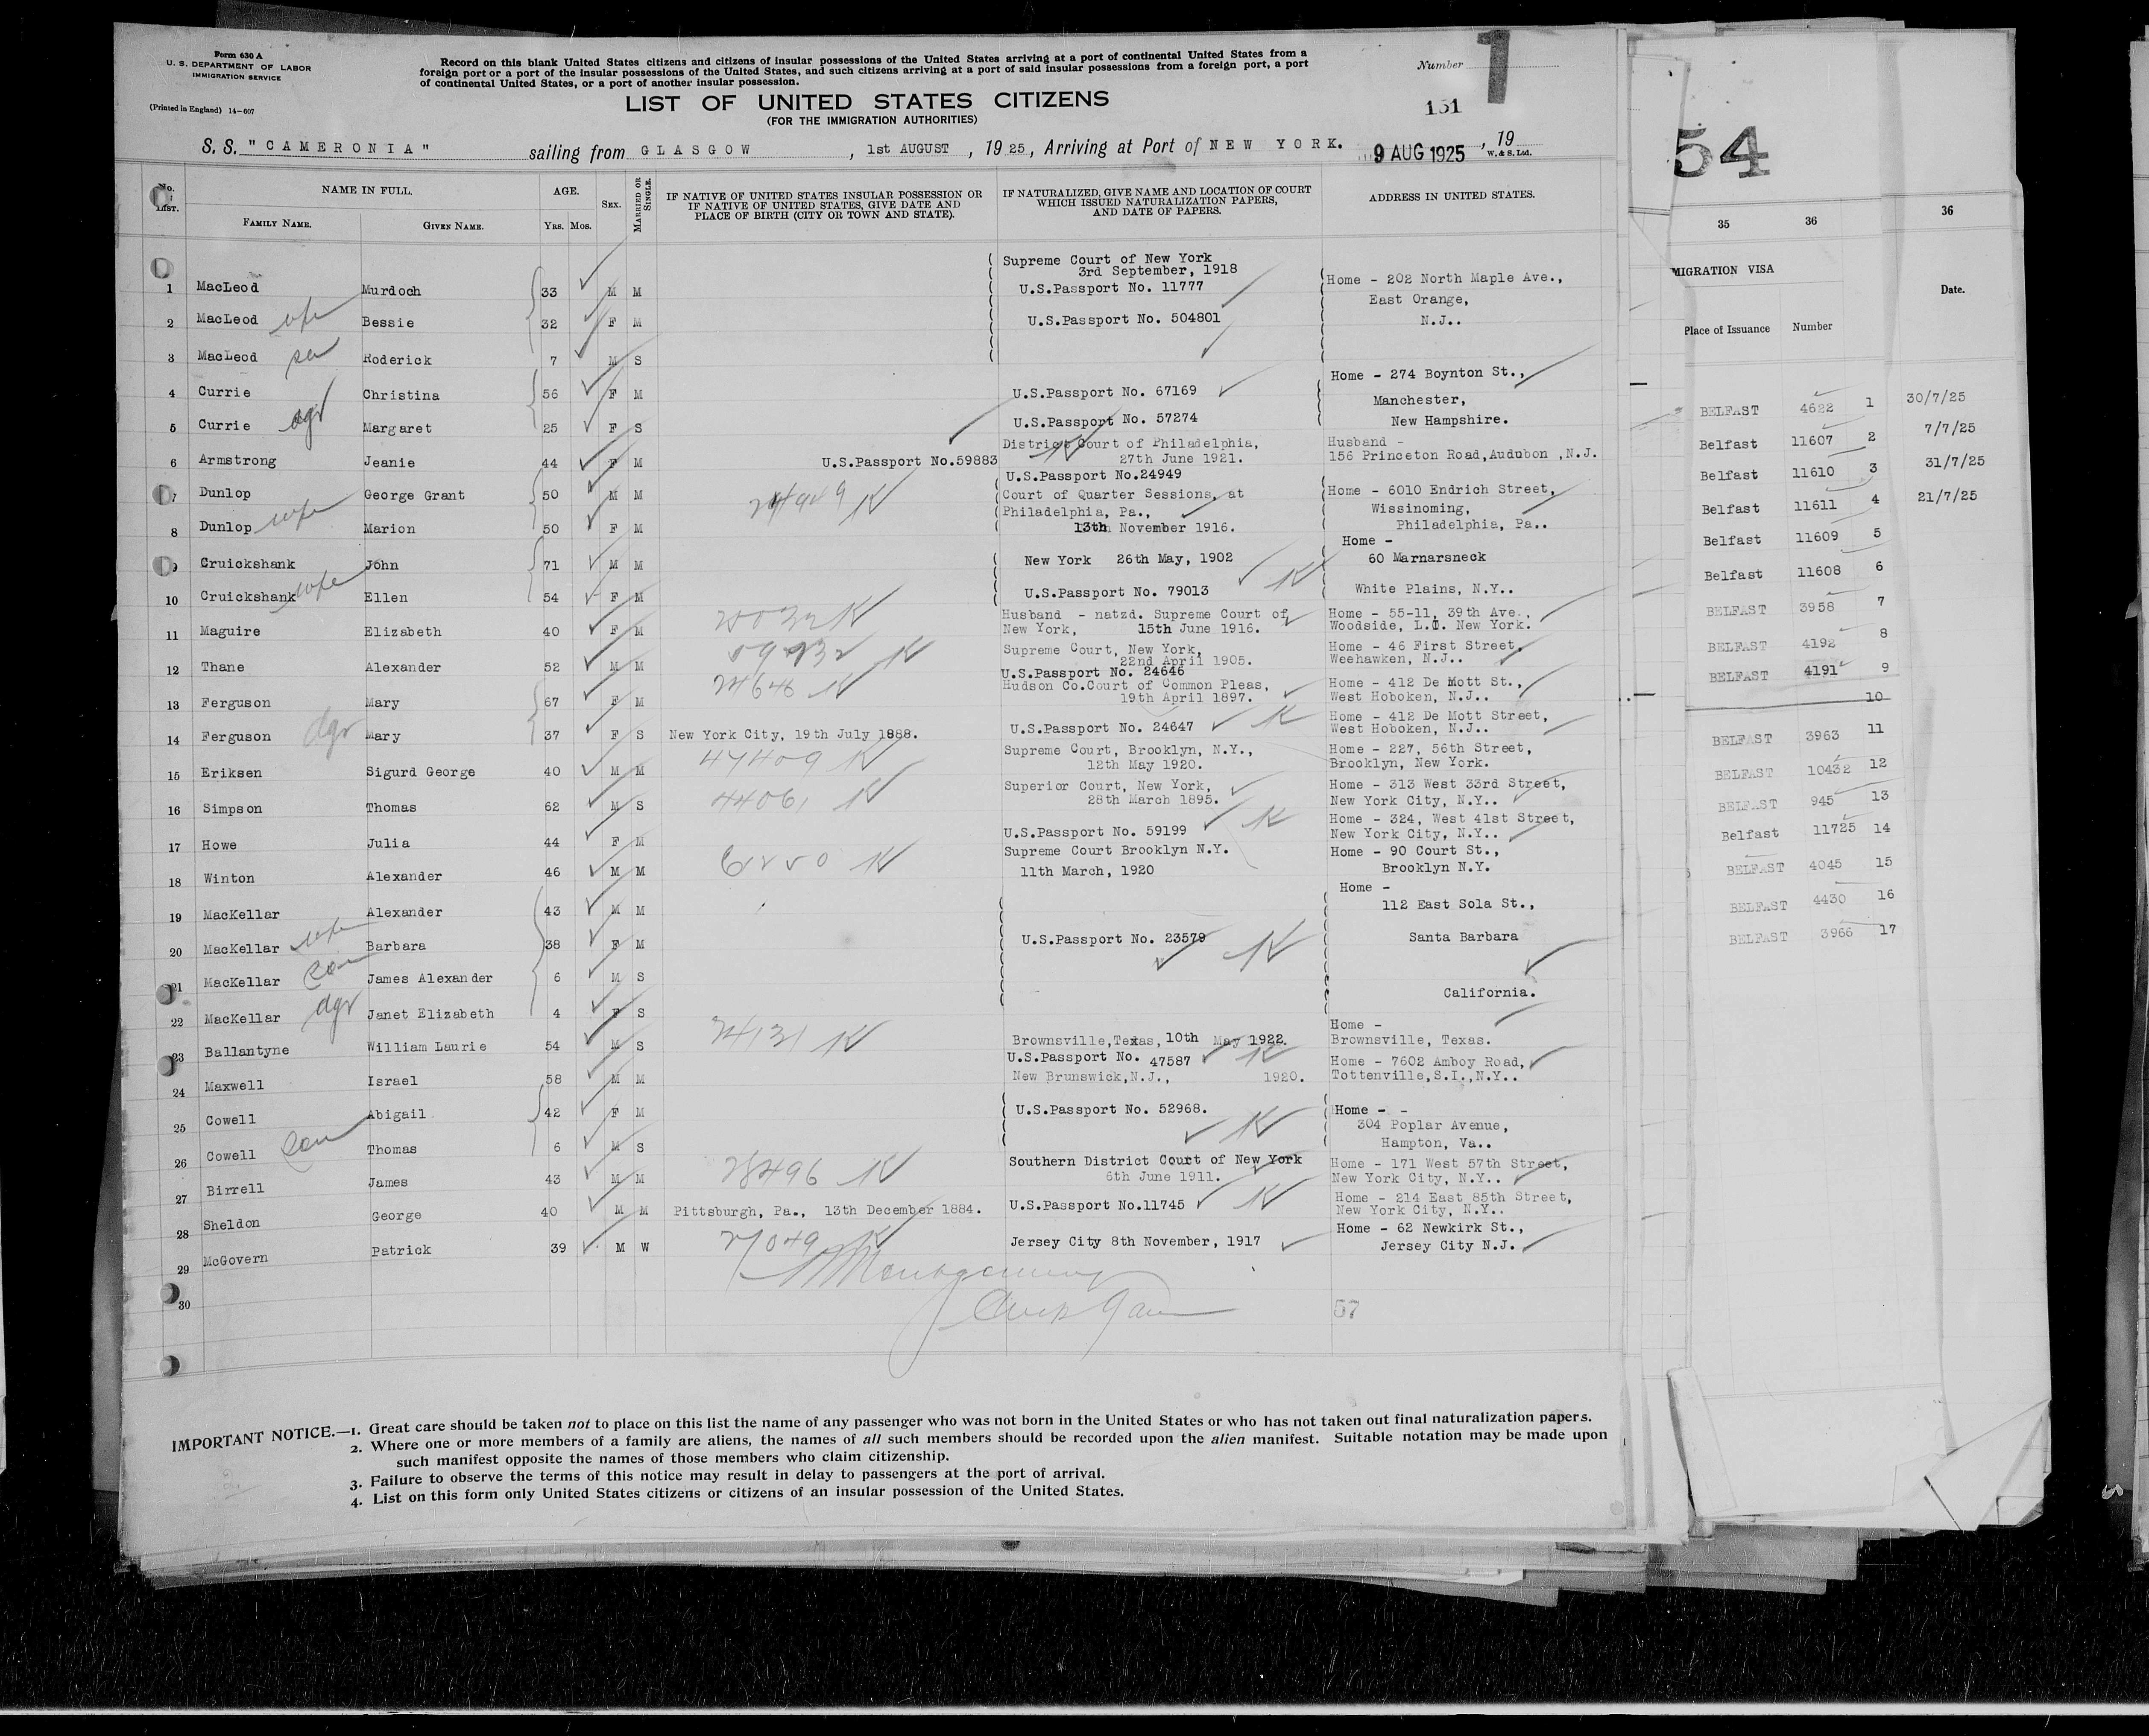 Form 630 A
U. S. DEPARTMENT OF LABOR
IMMIGRATION SERVICE
(Printed in England) 14-607
Record on this blank United States citizens and citizens of insular possessions of the United States arriving at a port of continental United States from a
foreign port or a port of the insular possessions of the United States, and such citizens arriving at a port of said insular possessions from a foreign port, a port
of continental United States, or a port of another insular possession.
Number 1
LIST OF UNITED STATES CITIZENS
(FOR THE IMMIGRATION AUTHORITIES)
151
S. S. "CAMERONIA" sailing from GLASGOW, 1st AUGUST, 1925, Arriving at Port of NEW YORK. 9 AUG 1925, 19
W. & S. Ltd.
No. LIST. NAME IN FULL. AGE. SEX. MARRIED OR SINGLE. IF NATIVE OF UNITED STATES INSULAR POSSESSION OR ADDRESS IN UNITED STATES.
IF NATIVE OF UNITED STATES, GIVE DATE AND
PLACE OF BIRTH (CITY OR TOWN AND STATE).
IF NATURALIZED, GIVE NAME AND LOCATION OF COURT
WHICH ISSUED NATURALIZATION PAPERS,
AND DATE OF PAPERS.
FAMILY NAME. GIVEN NAME. YRS. MOS.
Supreme Court of New York
3rd September, 1918
1 MacLeod Murdoch 33 M M U.S.Passport No. 11777 Home - 202 North Maple Ave.,
East Orange,
2 MacLeod wife Bessie 32 F M U.S.Passport No. 504801 N.J..
3 MacLeod Roderick 7 M S
Home - 274 Boynton St.,
4 Currie Christina 56 F M U.S.Passport No. 67169 Manchester,
5 Currie dgr Margaret 25 F S U.S.Passport No. 57274 New Hampshire.
District Court of Philadelphia, Husband -
6 Armstrong Jeanie 44 F M U.S.Passport No.59883 27th June 1921. 156 Princeton Road,Audubon ,N.J.
U.S.Passport No.24949
7 Dunlop George Grant 50 M M 24949 K Court of Quarter Sessions, at Home - 6010 Endrich Street,
Philadelphia, Pa., Wissinoming,
8 Dunlop wife Marion 50 F M 13th November 1916. Philadelphia, Pa..
Home -
9 Cruickshank John 71 M M New York 26th May, 1902 60 Marnarsneck
10 Cruickshank wife Ellen 54 F M U.S.Passport No. 79013 K White Plains, N.Y..
Husband - natzd. Supreme Court of Home - 55-11, 39th Ave.,
11 Maguire Elizabeth 40 F M New York, 15th June 1916. Woodside, L.I. New York.
Supreme Court, New York, Home - 46 First Street,
12 Thane Alexander 52 M M K 22nd April 1905. Weehawken, N.J..
U.S.Passport No. 24646
24646 K Hudson Co.Court of Common Pleas, Home - 412 De Mott St.,
13 Ferguson Mary 67 F M 19th April 1897. West Hoboken, N.J..
Home - 412 De Mott Street,
14 Ferguson dgr Mary 37 F S New York City, 19th July 1888. U.S.Passport No. 24647 K West Hoboken, N.J..
47409 K Supreme Court, Brooklyn, N.Y., Home - 227, 56th Street,
15 Eriksen Sigurd George 40 M M 12th May 1920. Brooklyn, New York.
44061 K Superior Court, New York, Home - 313 West 33rd Street,
16 Simpson Thomas 62 M S 28th March 1895. New York City, N.Y..
Home - 324, West 41st Street,
17 Howe Julia 44 F M U.S.Passport No. 59199 K New York City, N.Y..
Supreme Court Brooklyn N.Y. Home - 90 Court St.,
18 Winton Alexander 46 M M K 11th March, 1920 Brooklyn N.Y.
Home -
19 MacKellar Alexander 43 M M 112 East Sola St.,
20 MacKellar wife Barbara 38 F M U.S.Passport No. 23579 K Santa Barbara
21 MacKellar son James Alexander 6 M S
California.
22 MacKellar dgr Janet Elizabeth 4 F S
24131 K Home -
23 Ballantyne William Laurie 54 M S Brownsville,Texas, 10th May 1922. Brownsville, Texas.
U.S.Passport No. 47587 K Home - 7602 Amboy Road,
24 Maxwell Israel 58 M M New Brunswick,N.J., 1920. Tottenville,S.I.,N.Y..
25 Cowell Abigail 42 F M U.S.Passport No. 52968. K Home - -
304 Poplar Avenue,
26 Cowell son Thomas 6 M S Hampton, Va..
28496 K Southern District Court of New York Home - 171 West 57th Street,
27 Birrell James 43 M M 6th June 1911. New York City, N.Y..
Home - 214 East 85th Street,
28 Sheldon George 40 M M Pittsburgh, Pa., 13th December 1884. U.S.Passport No.11745 K New York City, N.Y..
Home - 62 Newkirk St.,
29 McGovern Patrick 39 M W 27049 K Jersey City 8th November, 1917 Jersey City N.J.
Montgomery
30 57
IMPORTANT NOTICE.—1. Great care should be taken not to place on this list the name of any passenger who was not born in the United States or who has not taken out final naturalization papers.
2. Where one or more members of a family are aliens, the names of all such members should be recorded upon the alien manifest. Suitable notation may be made upon
such manifest opposite the names of those members who claim citizenship.
3. Failure to observe the terms of this notice may result in delay to passengers at the port of arrival.
4. List on this form only United States citizens or citizens of an insular possession of the United States.
54
35 36 36
MIGRATION VISA
Date.
Place of Issuance Number
BELFAST 4622 1 30/7/25
Belfast 11607 2 7/7/25
Belfast 11610 3 31/7/25
Belfast 11611 4 21/7/25
Belfast 11609 5
Belfast 11608 6
BELFAST 3958 7
BELFAST 4192 8
BELFAST 4191 9
10
BELFAST 3963 11
BELFAST 10432 12
BELFAST 945 13
Belfast 11725 14
BELFAST 4045 15
BELFAST 4430 16
BELFAST 3966 17